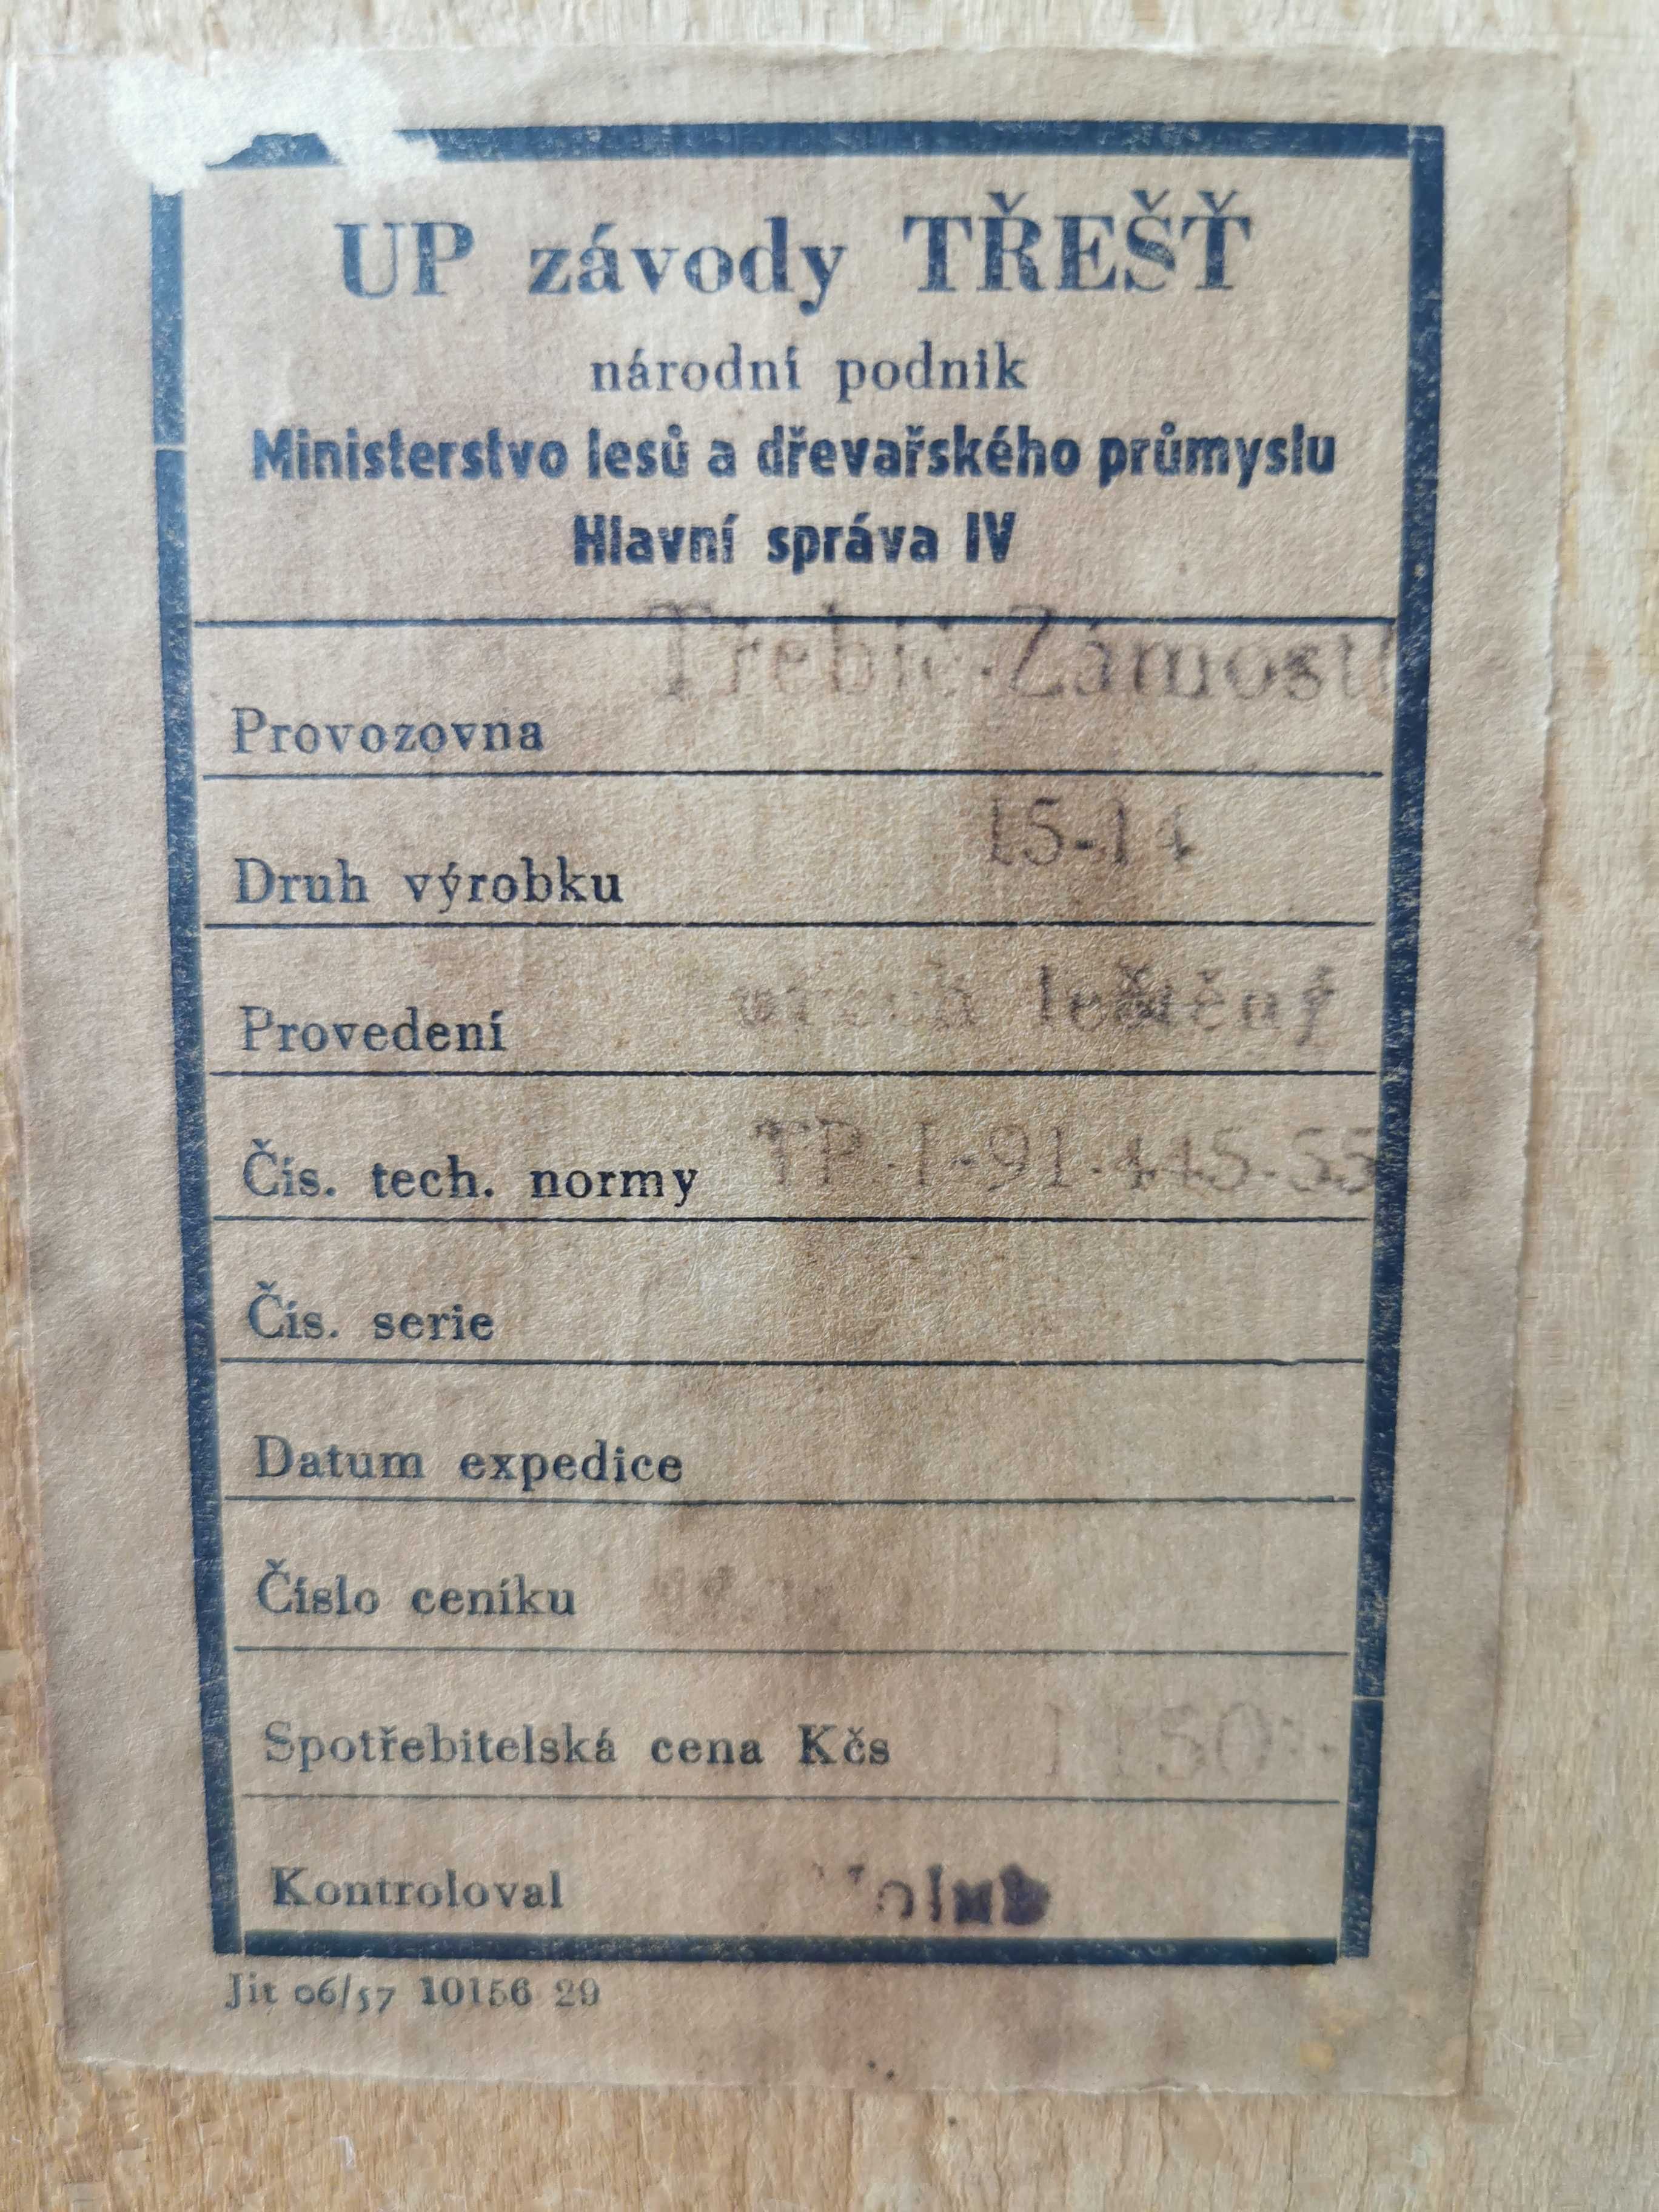 UP závody TŘEŠŤ
národní podnik
Ministerstvo lesů a dřevařského průmyslu
Hlavní správa IV
Provozovna Třebíč-Zámostí
Druh výrobku 15-14
Provedení ořech leštěný
Čís. tech. normy TP-1-91-445-55
Čís. serie
Datum expedice
Číslo ceníku
Spotřebitelská cena Kčs 1150:-
Kontroloval
Jit 06/57 10156 29